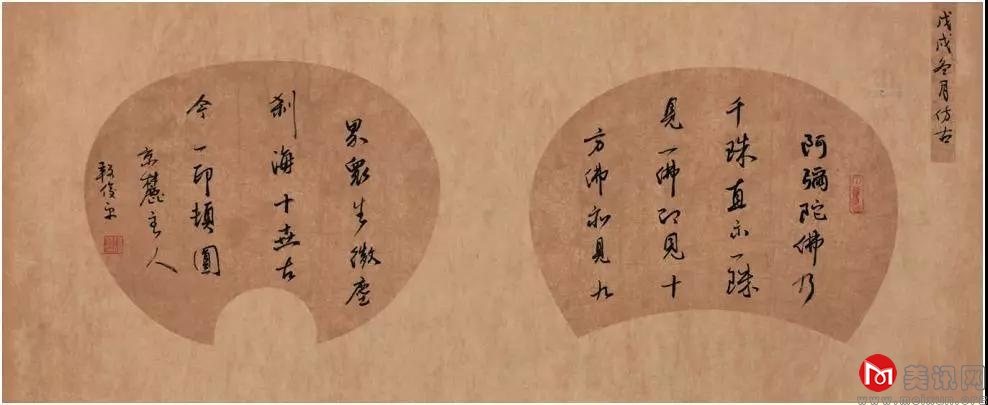 戊戌冬月仿古
阿彌陀佛乃
千珠直示一珠
見一佛即見十
方佛亦見九
界眾生微塵
刹海十世古
今一印頓圓
京麓主人
美讯网